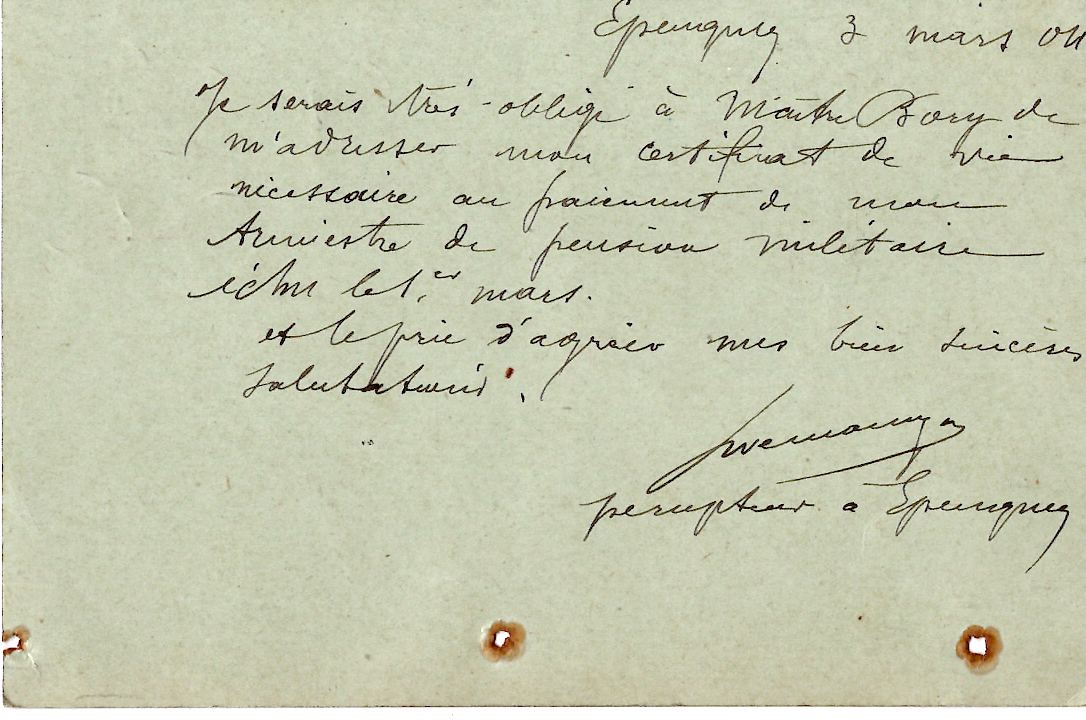 Epeugney 3 mars 04
Je serais très obligé à Maître Bory de
m'adresser mon certificat de vie
nécessaire au paiement de mon
trimestre de pension militaire
échu le 1er mars.
et le prie d'agréer mes bien sincères
salutations.
percepteur à Epeugney